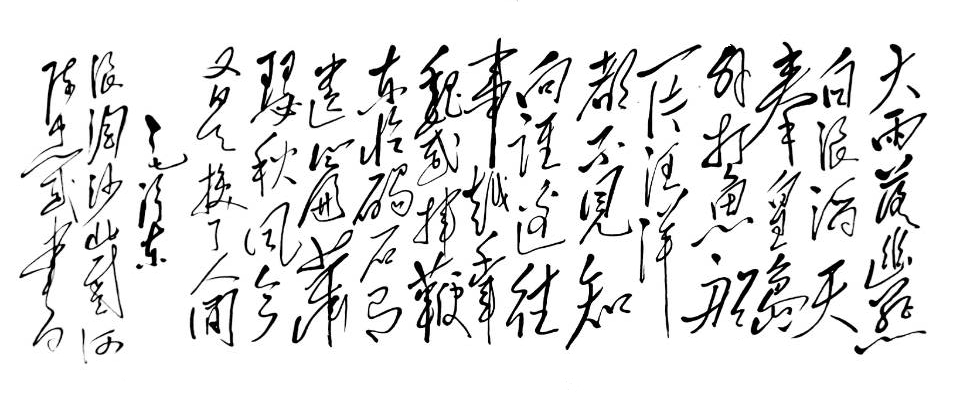 大雨落幽燕
白浪滔天
秦皇岛
外打鱼船
一片汪洋
都不见知
向谁边往
事越千年
魏武挥鞭
东临碣石有
遗篇萧
瑟秋风今
又是换了人间
毛泽东
浪淘沙北戴河
陈忠武书